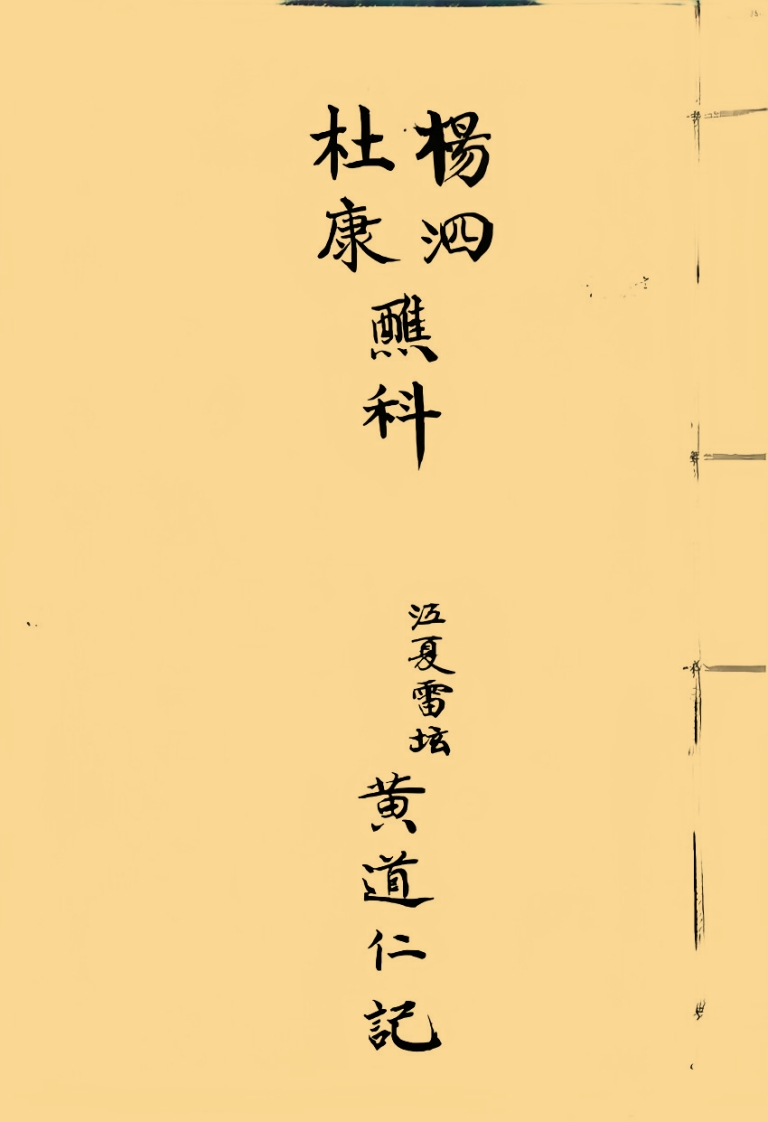 楊泗
杜康
醮科
江夏雷坛
黄道仁記